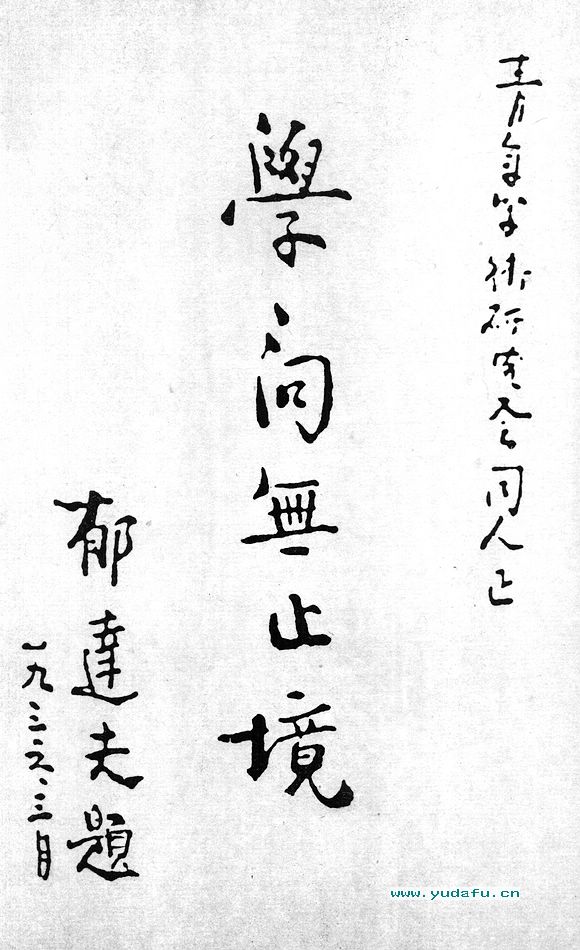 青年学術研究会同人正
學问無止境
郁達夫題
一九三六、三月
www.yudafu.cn